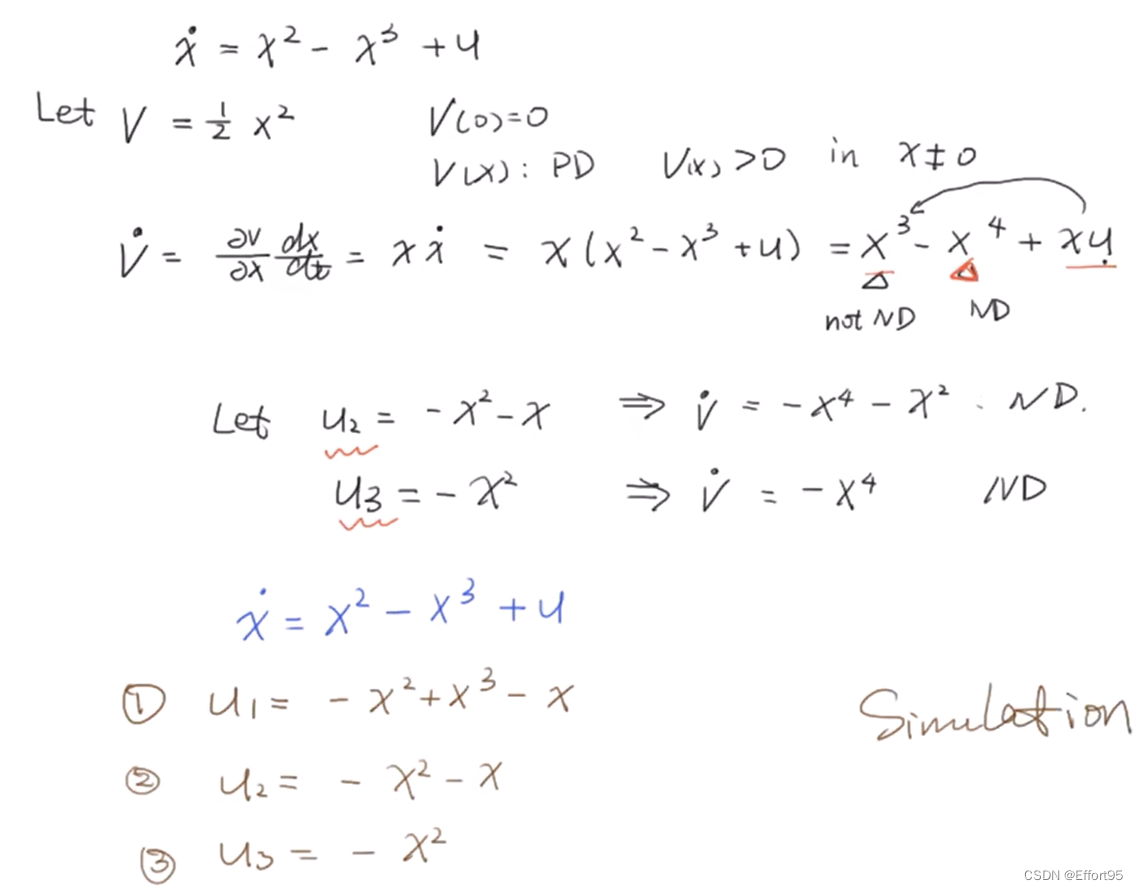 ẋ = x² - x³ + u
Let V = ½ x² V(0)=0
V(x): PD V(x) >0 in x≠0
V̇ = ∂V/∂x dx/dt = x ẋ = x (x² - x³ + u) = x³ - x⁴ + xu
not ND ND
Let u₂ = - x² - x ⇒ V̇ = - x⁴ - x² . ND.
u₃ = - x² ⇒ V̇ = - x⁴ ND
ẋ = x² - x³ + u
① u₁ = - x² + x³ - x Simulation
② u₂ = - x² - x
③ u₃ = - x²
CSDN @Effort95